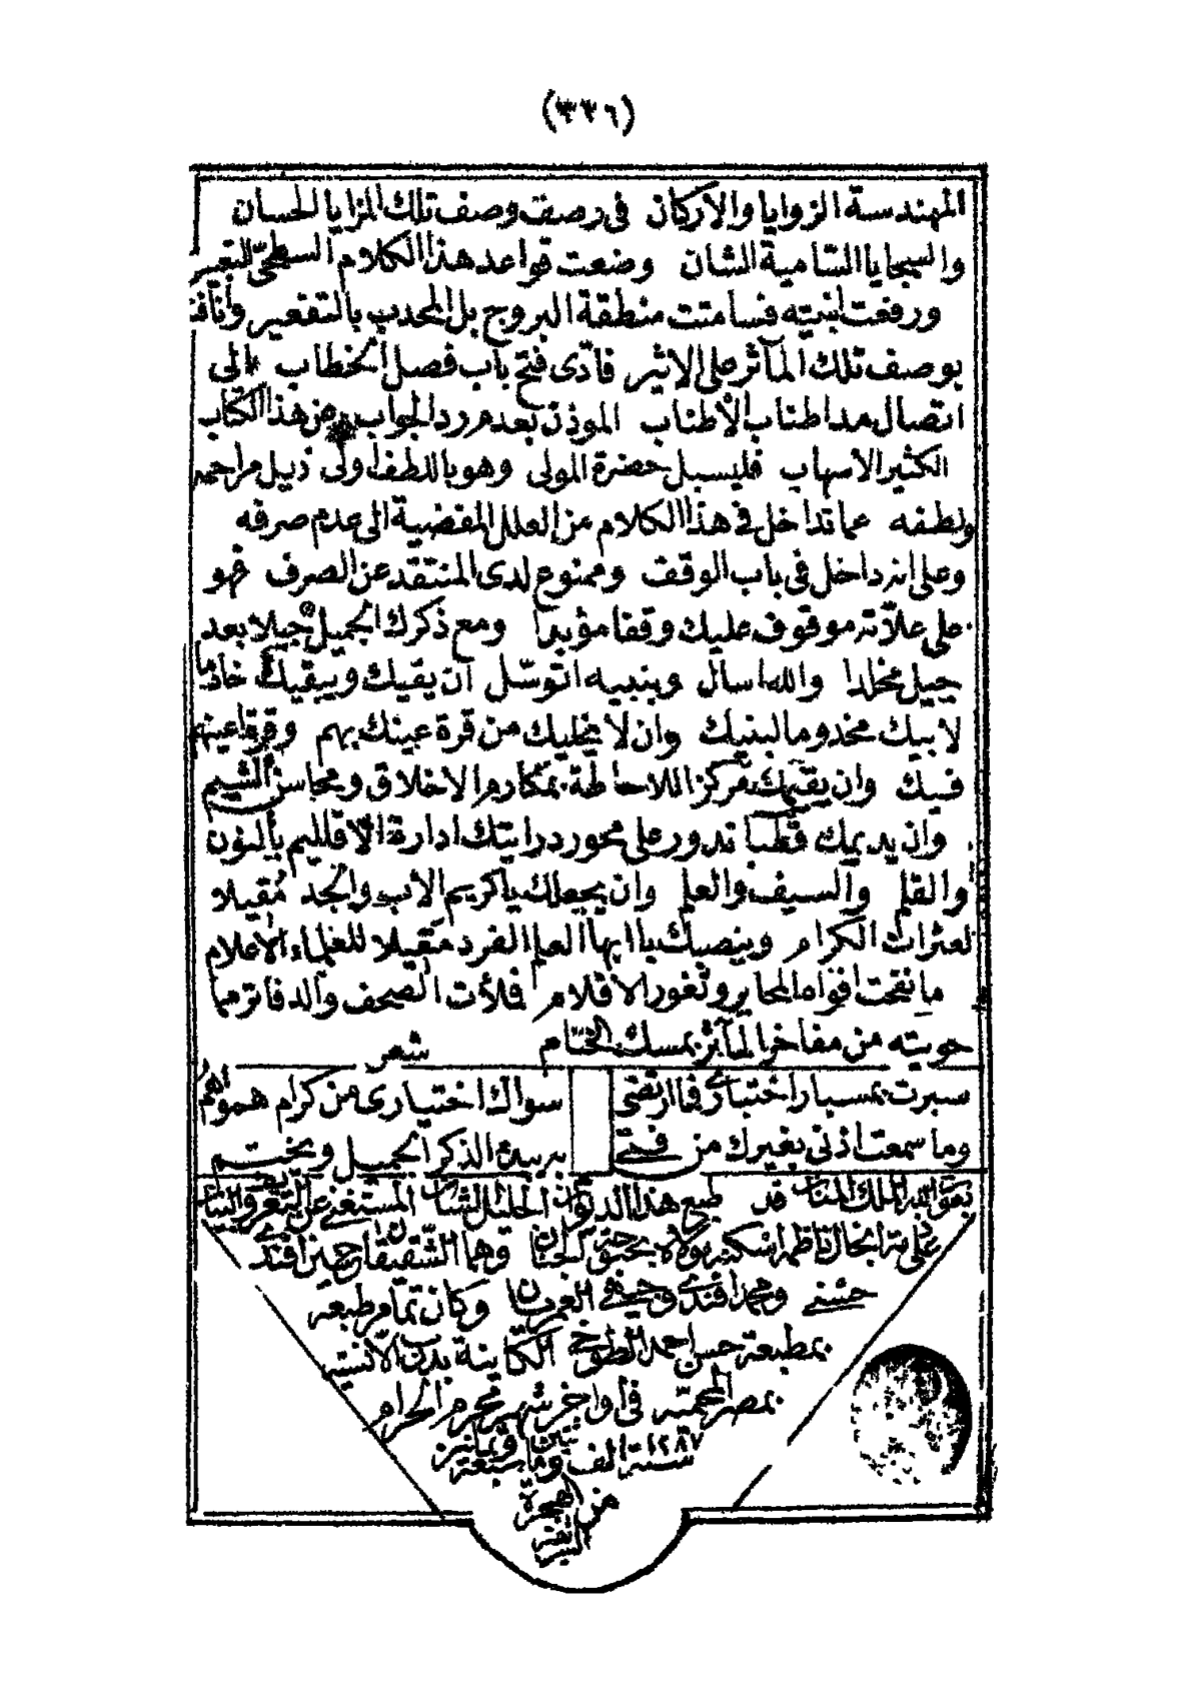 (٣٣٦)
المهندسة الزوايا والاركان في رصف وصف تلك المزايا الحسان
والسجايا السامية الشان وضعت قواعد هذا الكلام السطحيّ التعبير
ورفعت ابنيته فسامتت منطقة البروج بل المحدب بالتقعير وأنافت
بوصف تلك المآثر على الاثير فادّى فتح باب فصل الخطاب الى
اتصال مد اطناب الأطناب الموذن بعدم رد الجواب من هذا الكتاب
الكثير الاسهاب فليسبل حضرة المولى وهو باللطف اولى ذيل مراحمه
ولطفه عما تداخل في هذا الكلام من العلل المفضية الى عدم صرفه
وعلى انه داخل في باب الوقف وممنوع لدى المنتقد عن الصرف فهو
على علّاته موقوف عليك وقفا مؤبدا ومع ذكرك الجميل جيلا بعد
جيل مخلدا والله اسال وبنبيه اتوسّل أن يقيك ويبقيك خادما
لابيك مخدوما لبنيك وان لا يخليك من قرة عينك بهم وقرة اعينهم
فيك وان يقيمك مركز اللاحاطة بمكارم الاخلاق ومحاسن الشيم
وان يديمك قطبا تدور على محور درايتك ادارة الاقاليم بالنون
والقلم والسيف والعلم وان يجعلك ياكريم الأب والجد مُقيلا
لعثرات الكرام وينصبك ياايها العلم الفرد مَقيلا للعلماء الأعلام
ما نفحت افواه المحابر وثغور الاقلام فملأت الصحف والدفاتر مما
حويته من مفاخر المآثر بمسك الختام شعر
سبرت بمسبار اختباري فما ارتضى سواك اختياري من كرام همو همُ
وما سمعت اذني بغيرك من فتى به يبدئ الذكر الجميل ويختم
بعون الله الملك المنان قد طبع هذا الديوان الجليل الشان المستغني عن التعريف والبيان
على ذمة انجال ناظمه اسكنه مولاه بحبوحة الجنان وهما الشقيقان حسن افندي
حسني ومحمد افندي وكان تمام طبعه
بمطبعة حسن احمد الطوخي الكاينة بدرب الانسيه
بمصر المحميّه في أواخر شهر محرم الحرام
سنة ١٢٨٧ الف ومائتين وسبعة وثمانين
من الهجرة
الشريفة